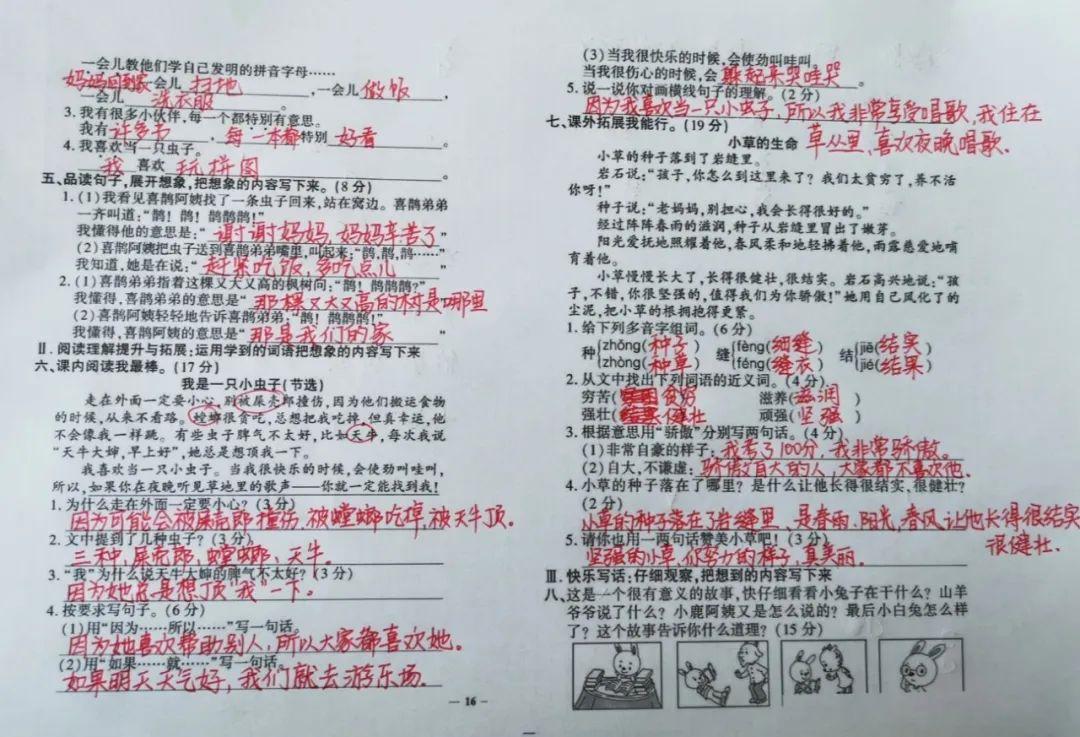 一会儿教他们学自己发明的拼音字母……
妈妈回到家一会儿 扫地,一会儿 做饭,
一会儿 洗衣服。
3. 我有很多小伙伴,每一个都特别有意思。
我有许多书,每一本都特别 好看。
4. 我喜欢当一只小虫子。
我 喜欢 玩拼图
五、品读句子,展开想象,把想象的内容写下来。(8分)
1. (1)我看见喜鹊阿姨找了一条虫子回来,站在窝边。喜鹊弟弟
一齐叫道:“鹊!鹊!鹊鹊鹊!”
我懂得他的意思是:“谢谢妈妈,妈妈辛苦了”
(2)喜鹊阿姨把虫子送到喜鹊弟弟嘴里,叫起来:“鹊,鹊,鹊……”
我知道,她是在说:“赶紧吃饭,多吃点儿”
2. (1)喜鹊弟弟指着这棵又大又高的枫树问:“鹊!鹊鹊鹊?”
我懂得,喜鹊弟弟的意思是“那棵又大又高的树是哪里
(2)喜鹊阿姨轻轻地告诉喜鹊弟弟:“鹊!鹊鹊鹊!”
我懂得,喜鹊阿姨的意思是“那是我们的家”
Ⅱ. 阅读理解提升与拓展:运用学到的词语把想象的内容写下来
六、课内阅读我最棒。(17分)
我是一只小虫子(节选)
走在外面一定要小心,别被屎壳郎撞伤,因为他们搬运食物
的时候,从来不看路。螳螂很贪吃,总想把我吃掉,但真幸运,他
不会像我一样跳。有些虫子脾气不太好,比如天牛,每次我说
“天牛大婶,早上好”,她总是想顶我一下。
我喜欢当一只小虫子。当我很快乐的时候,会使劲叫哇叫,
所以,如果你在夜晚听见草地里的歌声——你就一定能找到我!
1. 为什么走在外面一定要小心?(3分)
因为可能会被屎壳郎撞伤,被螳螂吃掉,被天牛顶。
2. 文中提到了几种虫子?(3分)
三种,屎壳郎,螳螂,天牛。
3. “我”为什么说天牛大婶的脾气不太好?(3分)
因为她总是想顶“我”一下。
4. 按要求写句子。(6分)
(1)用“因为……所以……”写一句话。
因为她喜欢帮助别人,所以大家都喜欢她。
(2)用“如果……就……”写一句话。
如果明天天气好,我们就去游乐场。
— 16 —
(3)当我很快乐的时候,会使劲叫哇叫。
当我很伤心的时候,会 躲起来哭哇哭。
5. 说一说你对画横线句子的理解。(2分)
因为我喜欢当一只小虫子,所以我非常享受唱歌,我住在
草丛里,喜欢夜晚唱歌.
七、课外拓展我能行。(19分)
小草的生命
小草的种子落到了岩缝里。
岩石说:“孩子,你怎么到这里来了?我们太贫穷了,养不活
你呀!”
种子说:“老妈妈,别担心,我会长得很好的。”
经过阵阵春雨的滋润,种子从岩缝里冒出了嫩芽。
阳光爱抚地照耀着他,春风柔和地轻拂着他,雨露慈爱地哺
育着他。
小草慢慢长大了,长得很健壮,很结实。岩石高兴地说:“孩
子,不错,你很坚强的,值得我们为你骄傲!”她用自己风化了的
尘泥,把小草的根拥抱得更紧。
1. 给下列多音字组词。(6分)
种{zhǒng(种子) 缝{fèng(细缝) 结{jiē(结实)
zhòng(种草) féng(缝衣) jié(结果)
2. 从文中找出下列词语的近义词。(4分)
穷苦(贫穷) 滋养(滋润)
强壮(健壮) 顽强(坚强)
3. 根据意思用“骄傲”分别写两句话。(4分)
(1)非常自豪的样子:我考了100分,我非常骄傲。
(2)自大,不谦虚:骄傲自大的人,大家都不喜欢他.
4. 小草的种子落在了哪里?是什么让他长得很结实,很健壮?
(2分)
小草的种子落在了岩缝里,是春雨、阳光,春风让他长得很结实
很健壮.
5. 请你也用一两句话赞美小草吧!(3分)
坚强的小草,你努力的样子,真美丽.
Ⅲ. 快乐写话:仔细观察,把想到的内容写下来
八、这是一个很有意义的故事,快仔细看看小兔子在干什么?山羊
爷爷说了什么?小鹿阿姨又是怎么说的?最后小白兔怎么样
了?这个故事告诉你什么道理?(15分)